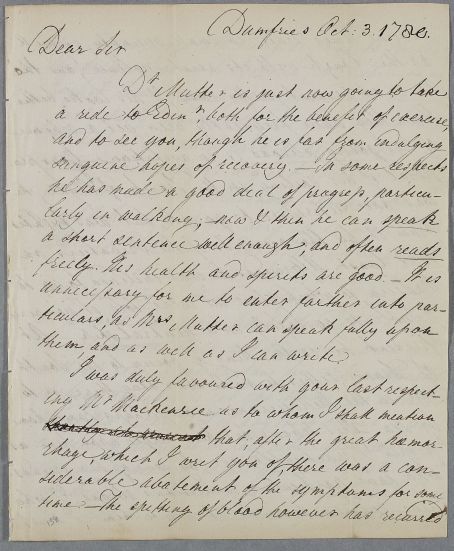 Dumfries Oct: 3. 1780.
Dear Sir
Dr Mutter is just now going to take
a ride to Edinr, both for the benefit of exercise,
and to see you, though he is far from indulging
sanguine hopes of recovery. — In some respects
he has made a good deal of progress, particu-
larly in walking; now & then he can speak
a short sentence well enough, and often reads
freely. His health and spirits are good. — It is
unnecessary for me to enter farther into par-
ticulars, as Mrs Mutter can speak fully upon
them, and as well as I can write
I was duly favoured with your last respect-
ing Mr Mackenzie as to whom I shall mention
that, after the great hæmor-
hage, which I writ you of, there was a con-
siderable abatement of the symptoms for some
time — The spitting of blood however has recurred